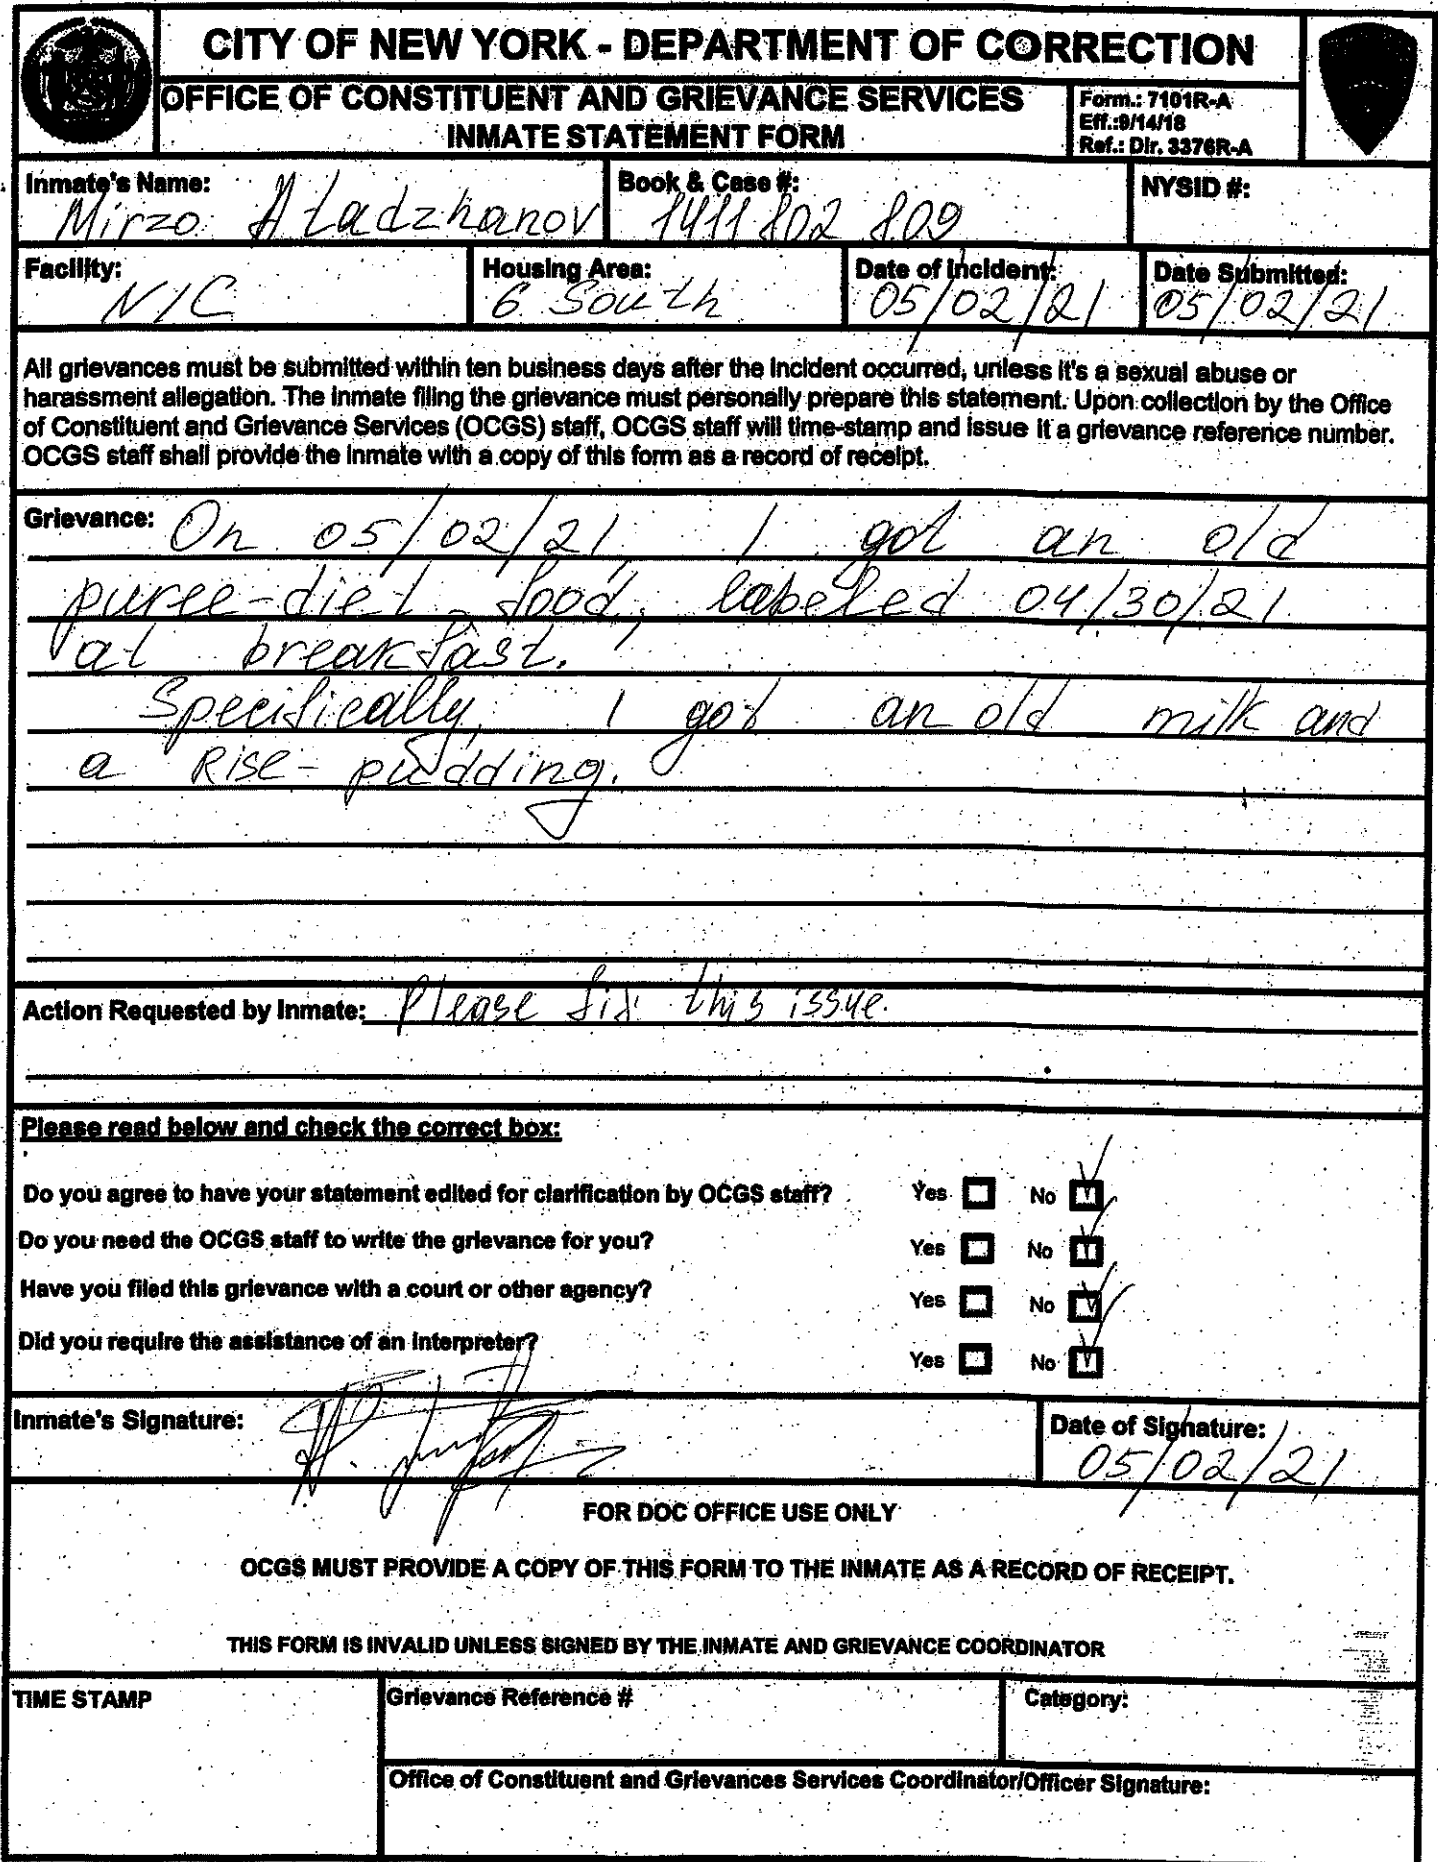 CITY OF NEW YORK - DEPARTMENT OF CORRECTION
OFFICE OF CONSTITUENT AND GRIEVANCE SERVICES
INMATE STATEMENT FORM
Form.: 7101R-A
Eff.:9/14/18
Ref.: Dir. 3376R-A
Inmate's Name: Mirzo Atadzhanov
Book & Case #: 1411802809
NYSID #:
Facility: NIC
Housing Area: 6 South
Date of Incident: 05/02/21
Date Submitted: 05/02/21
All grievances must be submitted within ten business days after the incident occurred, unless it's a sexual abuse or
harassment allegation. The inmate filing the grievance must personally prepare this statement. Upon collection by the Office
of Constituent and Grievance Services (OCGS) staff, OCGS staff will time-stamp and issue it a grievance reference number.
OCGS staff shall provide the inmate with a copy of this form as a record of receipt.
Grievance: On 05/02/21, I got an old
puree-diet food, labeled 04/30/21
at breakfast.
Specifically, I got an old milk and
a Rise-pudding.
Action Requested by Inmate: Please fix this issue.
Please read below and check the correct box:
Do you agree to have your statement edited for clarification by OCGS staff? Yes No
Do you need the OCGS staff to write the grievance for you? Yes No
Have you filed this grievance with a court or other agency? Yes No
Did you require the assistance of an interpreter? Yes No
Inmate's Signature:
Date of Signature: 05/02/21
FOR DOC OFFICE USE ONLY
OCGS MUST PROVIDE A COPY OF THIS FORM TO THE INMATE AS A RECORD OF RECEIPT.
THIS FORM IS INVALID UNLESS SIGNED BY THE INMATE AND GRIEVANCE COORDINATOR
TIME STAMP
Grievance Reference #
Category:
Office of Constituent and Grievances Services Coordinator/Officer Signature: